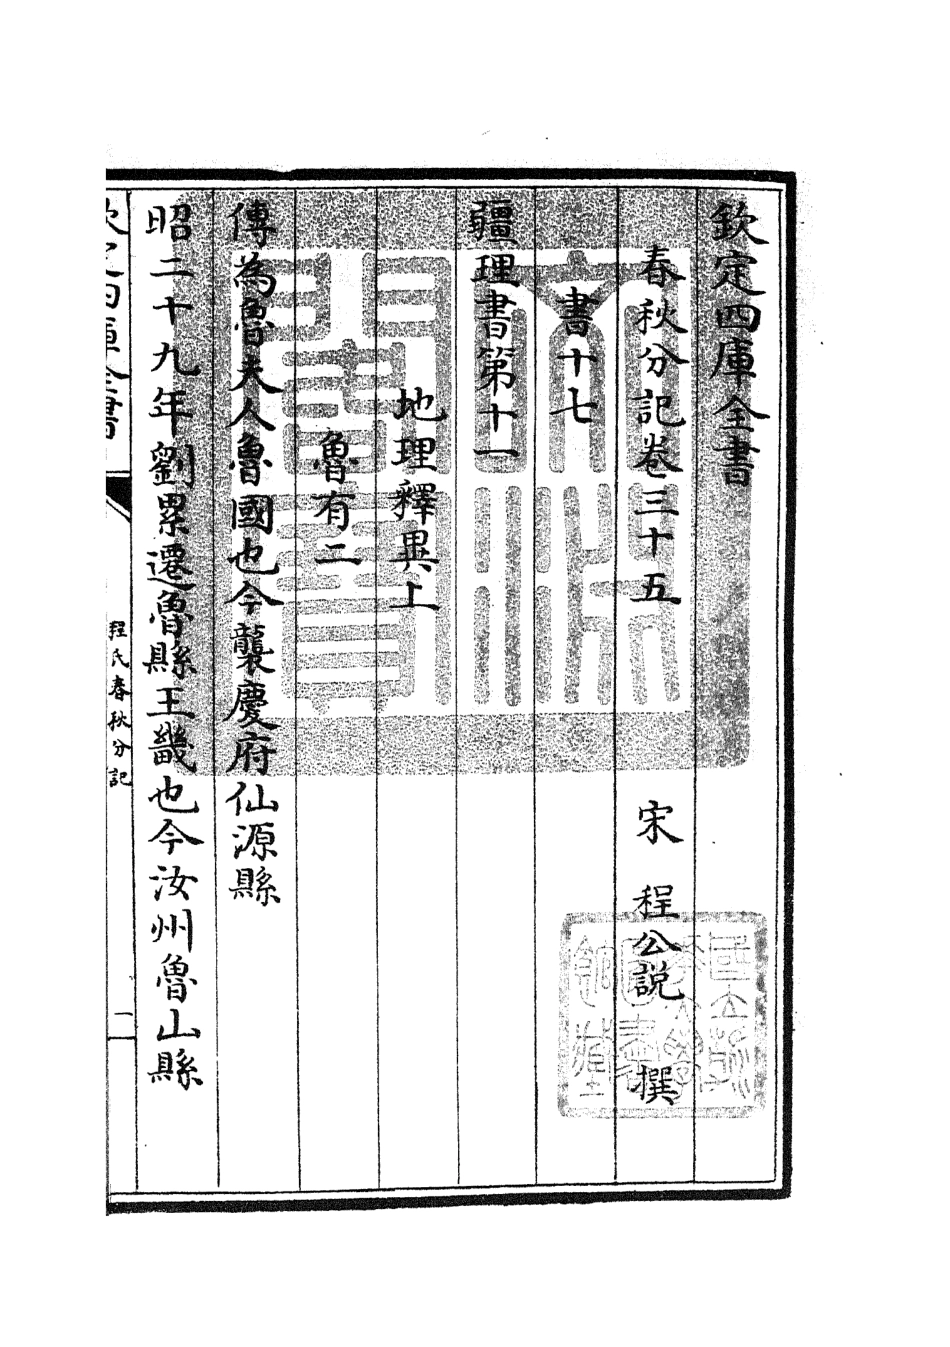 欽定四庫全書
春秋分記卷三十五
宋 程公説 撰
書十七
疆理書第十一
地理釋異上
魯有二
傳為魯夫人魯國也今襲慶府仙源縣
昭二十九年劉累遷魯縣王畿也今汝州魯山縣
程氏春秋分記
一